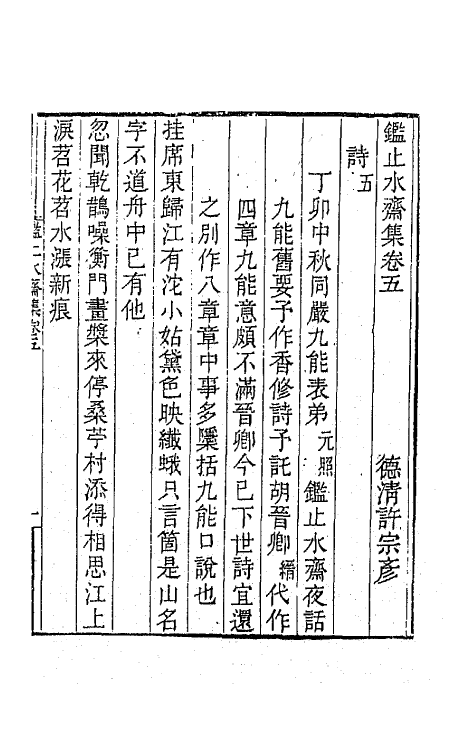 鑑止水齋集卷五
德清許宗彥
詩五
丁卯中秋同嚴九能表弟元照鑑止水齋夜話
九能舊要予作香修詩予託胡晉卿縉代作
四章九能意頗不滿晉卿今已下世詩宜還
之別作八章章中事多櫽括九能口說也
挂席東歸江有沱小姑黛色映纖蛾只言箇是山名
字不道舟中已有他
忽聞乾鵲噪衡門畫槳來停桑苧村添得相思江上
淚苕花苕水漲新痕
鑑止水齋集卷五
一